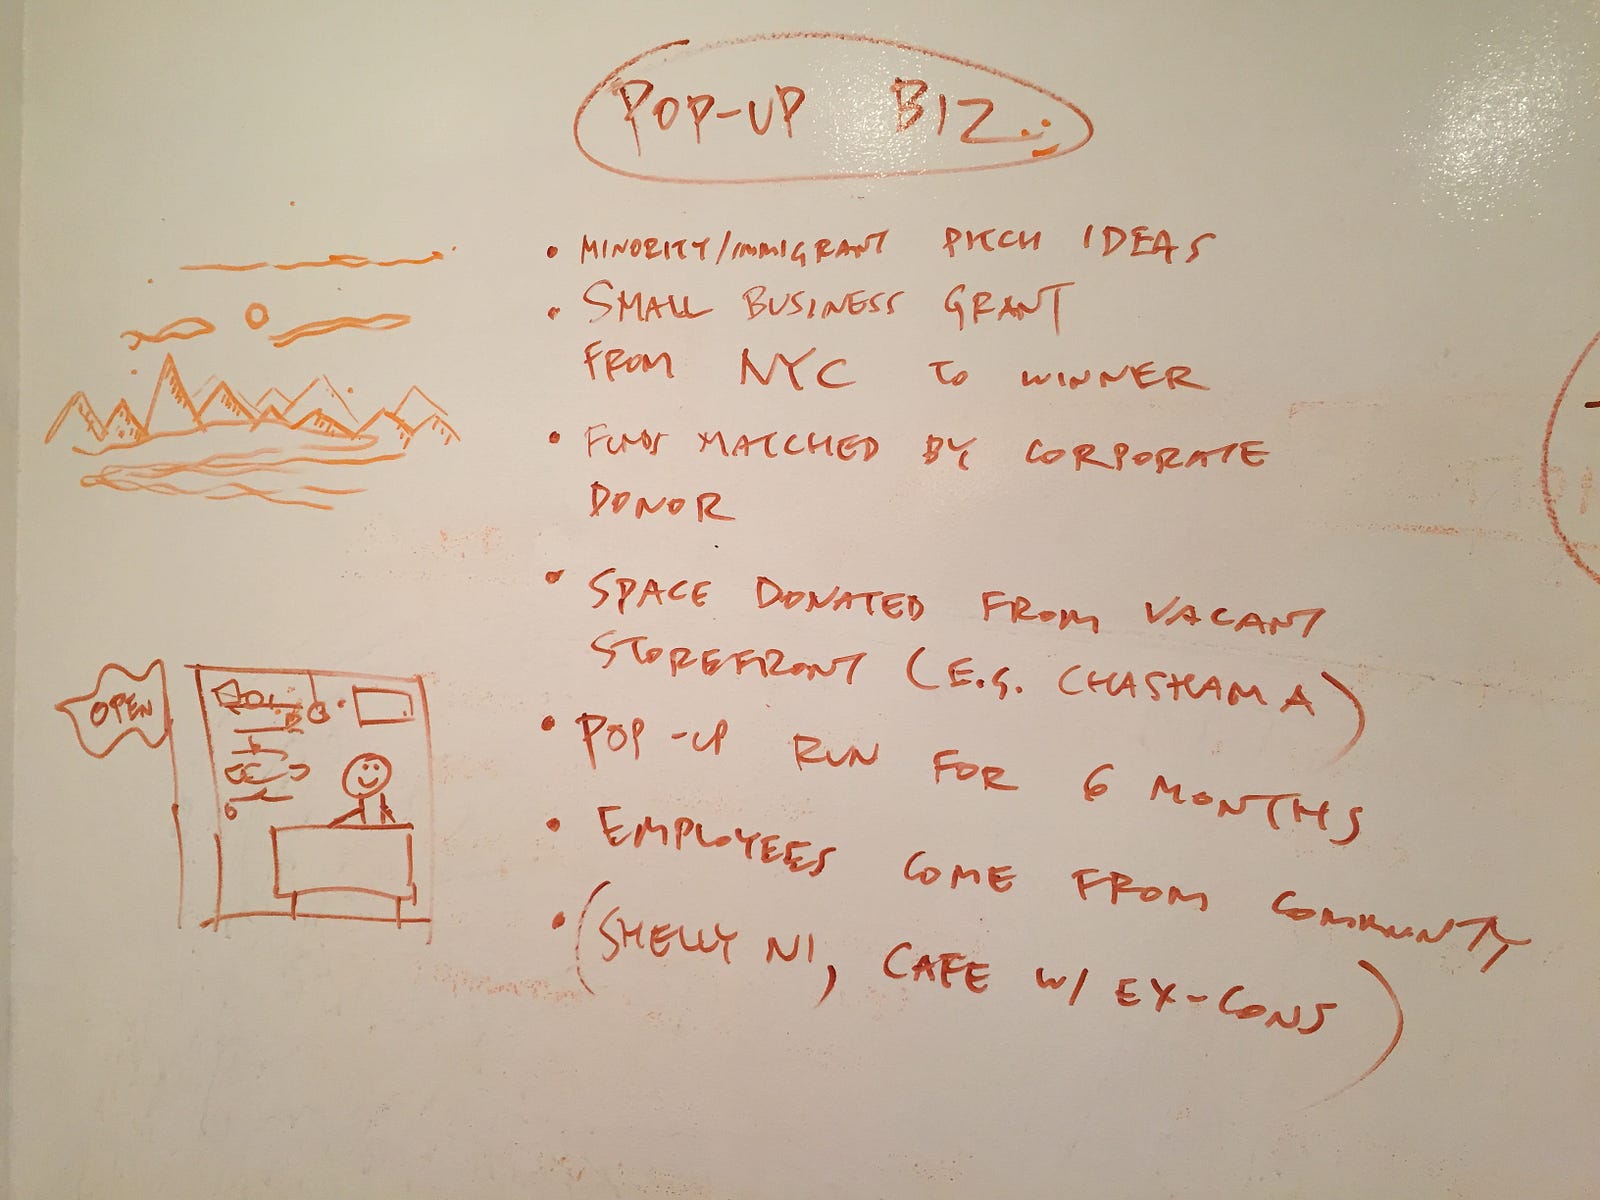 POP-UP BIZ
• MINORITY/IMMIGRANT PITCH IDEAS
• SMALL BUSINESS GRANT
FROM NYC TO WINNER
• FUNDS MATCHED BY CORPORATE
DONOR
• SPACE DONATED FROM VACANT
STOREFRONT (E.G. CHASHAMA)
• POP-UP RUN FOR 6 MONTHS
• EMPLOYEES COME FROM COMMUNITY
• (SHELLY NI, CAFE W/ EX-CONS)
OPEN